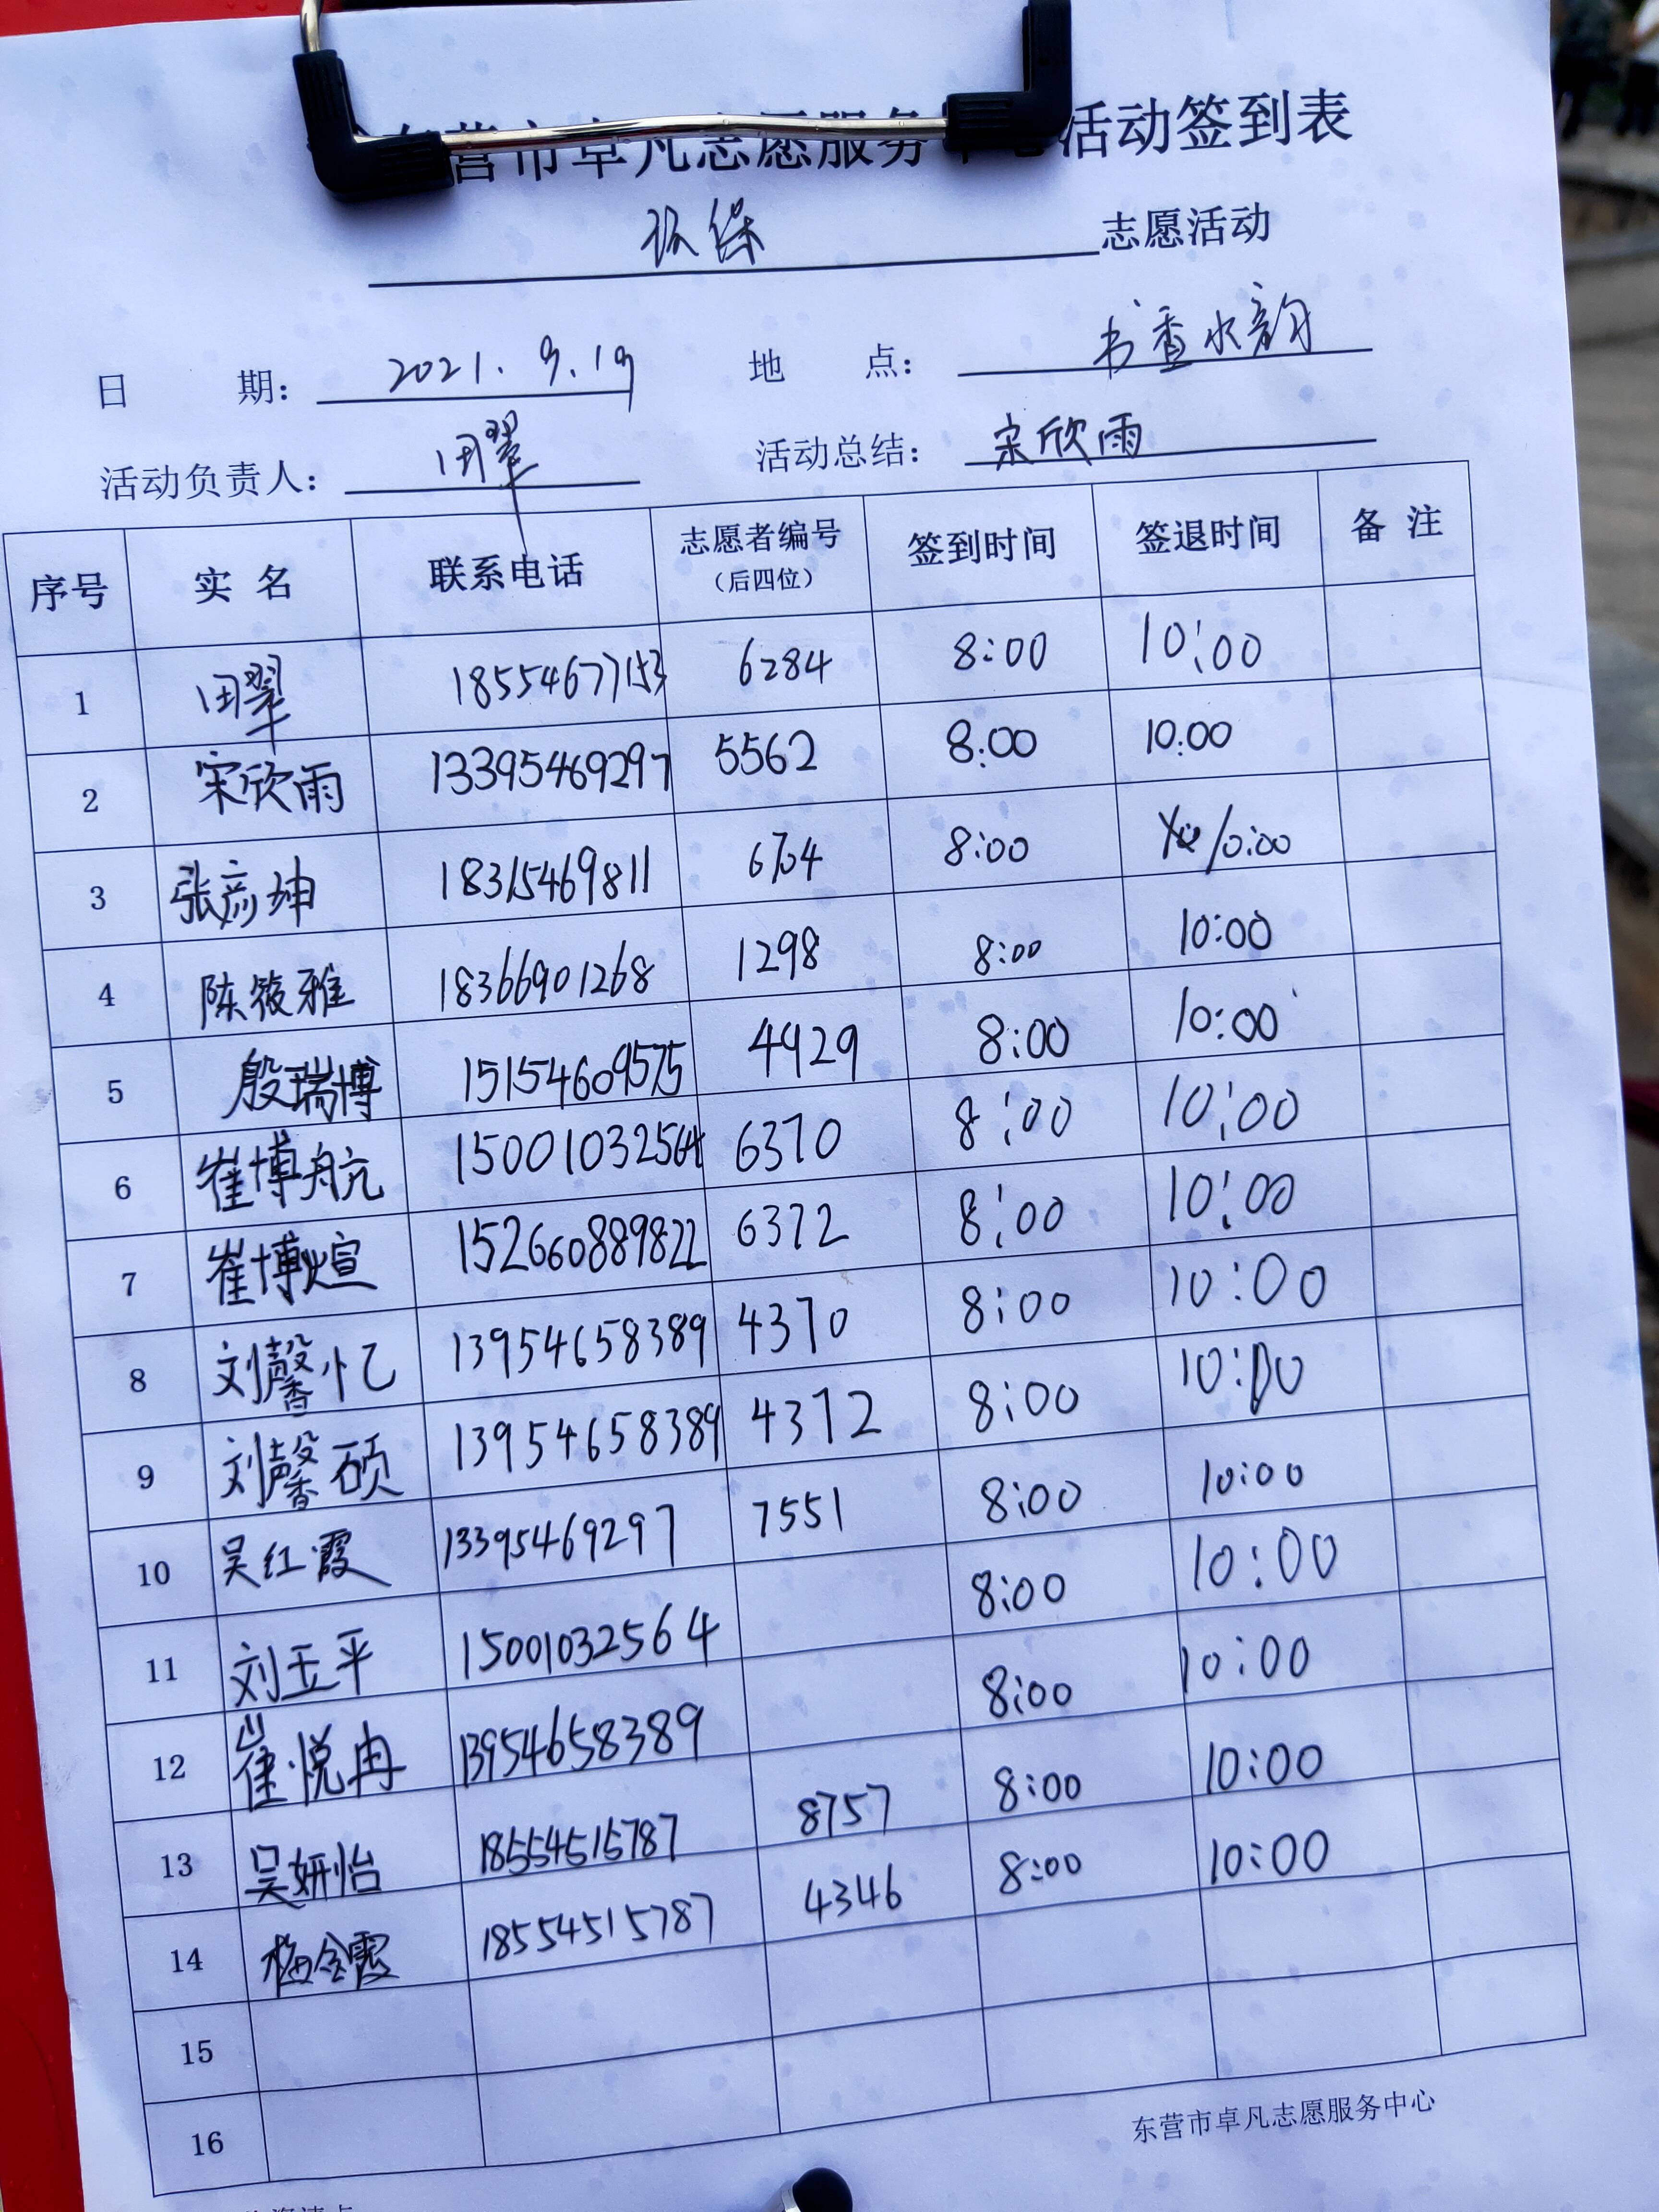 东营市卓凡志愿服务中心活动签到表
环保 志愿活动
日 期： 2021.9.19 地 点： 书香水韵
活动负责人： 田翠 活动总结： 宋欣雨
序号 实 名 联系电话 志愿者编号（后四位） 签到时间 签退时间 备 注
1 田翠 18554677153 6284 8:00 10:00
2 宋欣雨 13395469297 5562 8:00 10:00
3 张彦坤 18315469811 6704 8:00 10:00
4 陈筱雅 18366901268 1298 8:00 10:00
5 殷瑞博 15154609575 4929 8:00 10:00
6 崔博航 15001032564 6370 8:00 10:00
7 崔博煊 152660889822 6372 8:00 10:00
8 刘馨忆 13954658389 4370 8:00 10:00
9 刘馨硕 13954658389 4372 8:00 10:00
10 吴红霞 13395469297 7551 8:00 10:00
11 刘玉平 15001032564 8:00 10:00
12 崔悦冉 13954658389 8:00 10:00
13 吴妍怡 18554515787 8757 8:00 10:00
14 梅金霞 18554515787 4346 8:00 10:00
15
16
东营市卓凡志愿服务中心